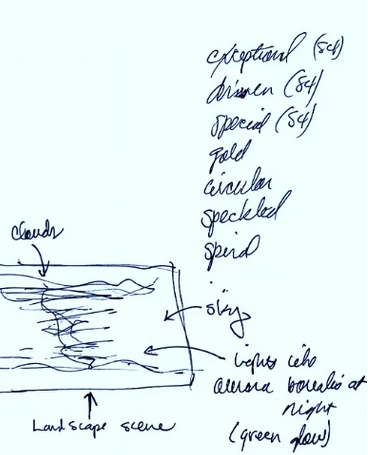 exceptional (S4)
driven (S4)
special (S4)
gold
circular
speckled
spiral
clouds
sky
lights like
aurora borealis at
night
(green glow)
Landscape scene